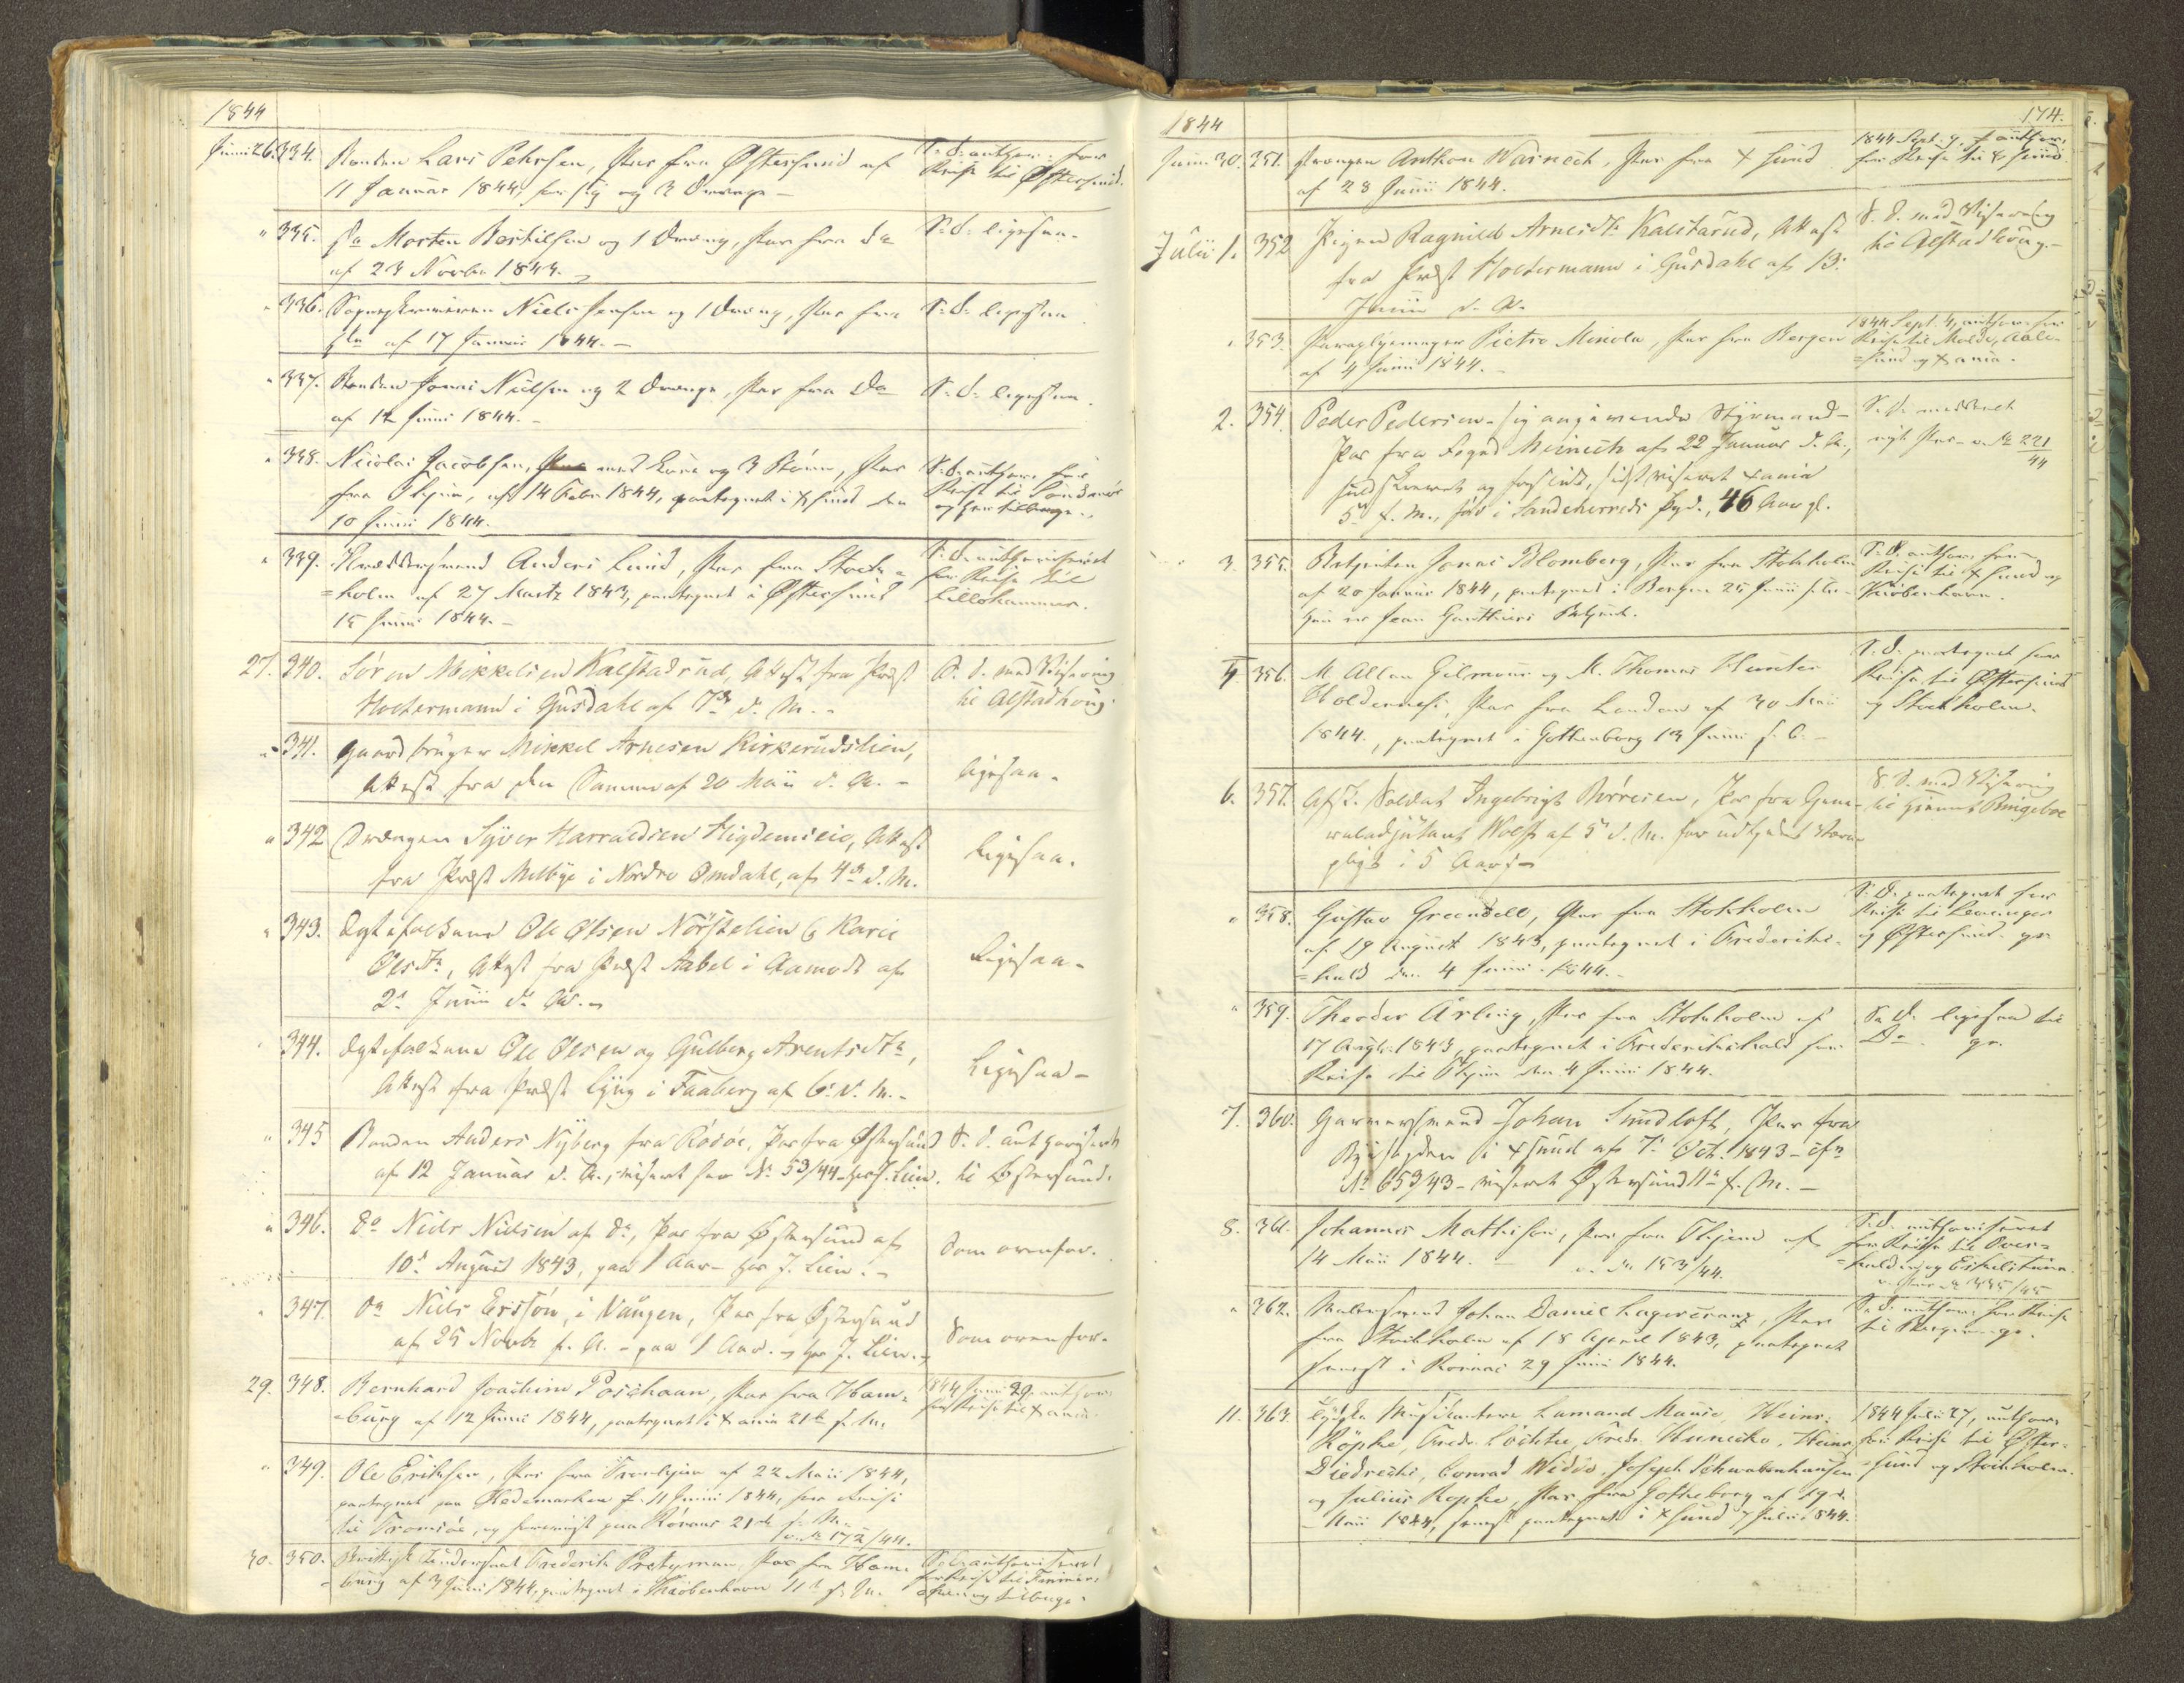 1844
Junii 26. 334. Bonden Lars Pehrsen, Pas fra Østersund af
11 Januar 1844, for sig og 2 Drenge -
S. D. author: for
Reise til Østersund.
" 335. do Morten Bertilsen og 1 Dreng, Pas fra do
af 23 Novbr 1843.
S. D. ligesaa.
" 336. Niels Jensen og 1 Dreng, Pas fra
do af 17 Januar 1844. -
S. D. ligesaa
" 337. Bonden Jonas Nielsen og 2 Drenge, Pas fra Do
af 12 Junii 1844. -
S. D. ligesaa.
" 338. Nicolai Jacobsen, med Kone og 3 Børn, Pas
fra af 14 Febr 1844, paategnet i Xsund den
10 Junii 1844.
S. D. author. for
Reise til
og her tilbage.
" 339. Anders Lund, Pas fra Stock=
=holm af 27 Marts 1843, paategnet i Østersund
15 Junii 1844. -
S. D. authoriseret
for Reise til
Lillehammer.
27. 340. Søren Mikkelsen Kalstadrud, Attest fra Præst
Holtermann i Gusdahl af 7de d. M. -
S. D. med Visering
til Alstadhoug.
" 341. Gaardbruger Mikkel Arnesen Kirkerudslien,
Attest fra den Samme af 20 Maii d. A. -
ligesaa.
" 342 Drengen Syver Harraldsen Higdemseie, Attest
fra Præst Melbye i Nordre Omdahl, af 4de d. M.
Ligesaa.
" 343. Ægtefolkene Ole Olsen Nörstelien & Karie
Olsdtr, Attest fra Præst Aabel i Aamodt af
2d Junii d. A. -
Ligesaa -
344. Ægtefolkene Ole Olsen og Gulberg Arentsdtr,
Attest fra Præst Lyng i Faaberg af 6. d. M. -
Ligesaa -
" 345 Bonden Anders Nyberg fra Rödöe, Pas fra Østersund
af 12 Januar d. A., viseret her No 53/44 - hos J. Lien.
S. D. authoriseret
til Østersund.
" 346. do Niels Nielsen af do, Pas fra Østersund af
10d August 1843, paa 1 Aar - hos J. Lien. -
Som ovenfor.
" 347. do Niels Ersson, i Vången, Pas fra Østersund
af 25 Novbr f. A. - paa 1 Aar. - hos J. Lien. -
Som ovenfor.
29. 348. Bernhard Joachim Poschaan, Pas fra Ham=
=burg af 12 Junii 1844, paategnet i Xania 21de f. M.
1844 Junii 29. author.
for Reise til Xania.
" 349. Ole Eriksen, Pas fra Tronhjem af 22 Maii 1844,
paategnet paa Hedemarken d. 11 Junii 1844, for Reise
til Tromsöe, og paa Röraas 21de d. M.
v. No 172/44.
30. 350. Brittisk Undersaat Frederik Pretyman, Pas fra Ham=
=burg af 3 Junii 1844, paategnet i Kiøbenhavn 11te d. M.
S. D. authoriseret
for Reise til Finmar=
ken og tilbage.
1844
174.
Junii 30. 351. Drengen Anthon Warnech, Pas fra Xsund
af 28 Junii 1844.
1844 Sept. 9, author,
for Reise til Xsund.
Julii 1. 352 Pigen Ragnild Arnesdtr Kalstarud, Attest
fra Præst Holtermann i Gusdahl af 13.
Junii d. A.
S. D. med Visering
til Alstadhoug. -
" 353. Paraplymager Pietro Minola, Pas fra Bergen
af 4 Junii 1844. -
1844 Sept. 4, author. for
Reise til Molde, Aale=
=sund og Xania.
2. 354. Peder Pedersen - sig angivende Styrmand -
Pas fra Foged Meinich af 22 Januar d. A.,
fuldskrevet og forslidt, sidst viseret Xania
5 f. M., föd i Sandeherreds Pgd., 46 Aar gl.
S. D. meddeelt
nyt Pas - v. No 221/44
3. 355. Betjenten Jonas Blomberg, Pas fra Stokholm
af 20 Januar 1844, paategnet i Bergen 25 Junii
S. D. author. for
Reise til Xsund og
Kiøbenhavn.
4 356. M. Allan Gilmour og M. Thomas Hunter
Holderness, Pas fra London af 30 Maii
1844., paategnet i Gothenborg 13 Junii
S. D. paategnet for
Reise til Østersund
og Stockholm.
6. 357. Afsk. Soldat Ingebrigt Börresen, Pas fra Gene=
raladjutant Wolff af 5 d. M. for udtjent Værne=
pligt i 5 Aar. -
S. D. med Visering
til Hjemst. Ringeboe
" 358. Gustav Greendell, Pas fra Stokholm
af 19 August 1843, paategnet i Frederiks=
=hald den 4 Junii 1844. -
S. D. paategnet for
Reise til Levanger
og Østersund.
" 359. Theodor Ärling, Pas fra Stokholm af
17 Augs. 1843, paategnet i Frederikshald for
Reise til den 4 Junii 1844.
S. D. ligesaa til
Do.
7. 360. Garversvend Johan Sundloft, Pas fra
Byefogden i Xsund af 7. Oct. 1843 - cfr
No 653/43 - viseret Østersund 11te f. M. -
8. 361. Johannes Mathison, Pas fra af
14 Maii 1844. v. No 153/44.
S. D. authoriseret
for Reise til Over=
=halden og Eskilstuna.
v. No 335/45
" 362. Malersvend Johan Daniel Lagercrantz, Pas
fra Stokholm af 18 April 1843, paategnet
senest i Röraas 29 Junii 1844.
S. D. author. for Reise
til Bergen.
11. 363. Tydske Musikantere Lamand Mause, Heinr.
Röpke, Fredr. Lochte, Fredr. Hunecke, Heinr.
Diedrichs, Conrad Widdo, Joseph Schwabenhausen
og Julius Kopke, Pas fra Gothebory af 19de
Maii 1844, senest paategnet i Xsund 7 Julii 1844.
1844 Julii 27, author.
for Reise til Øster=
=sund og Stockholm.